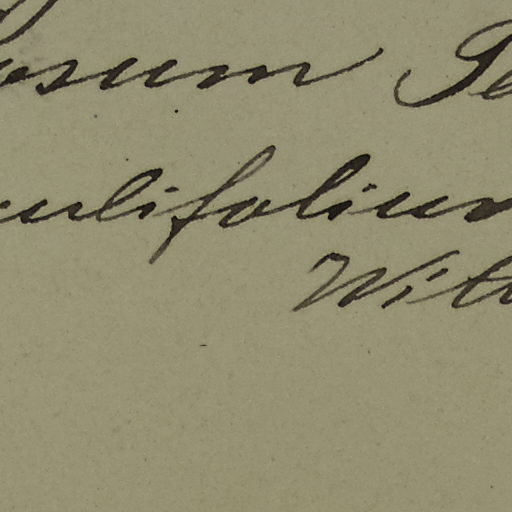 osum Pe
ulifolium
Wit